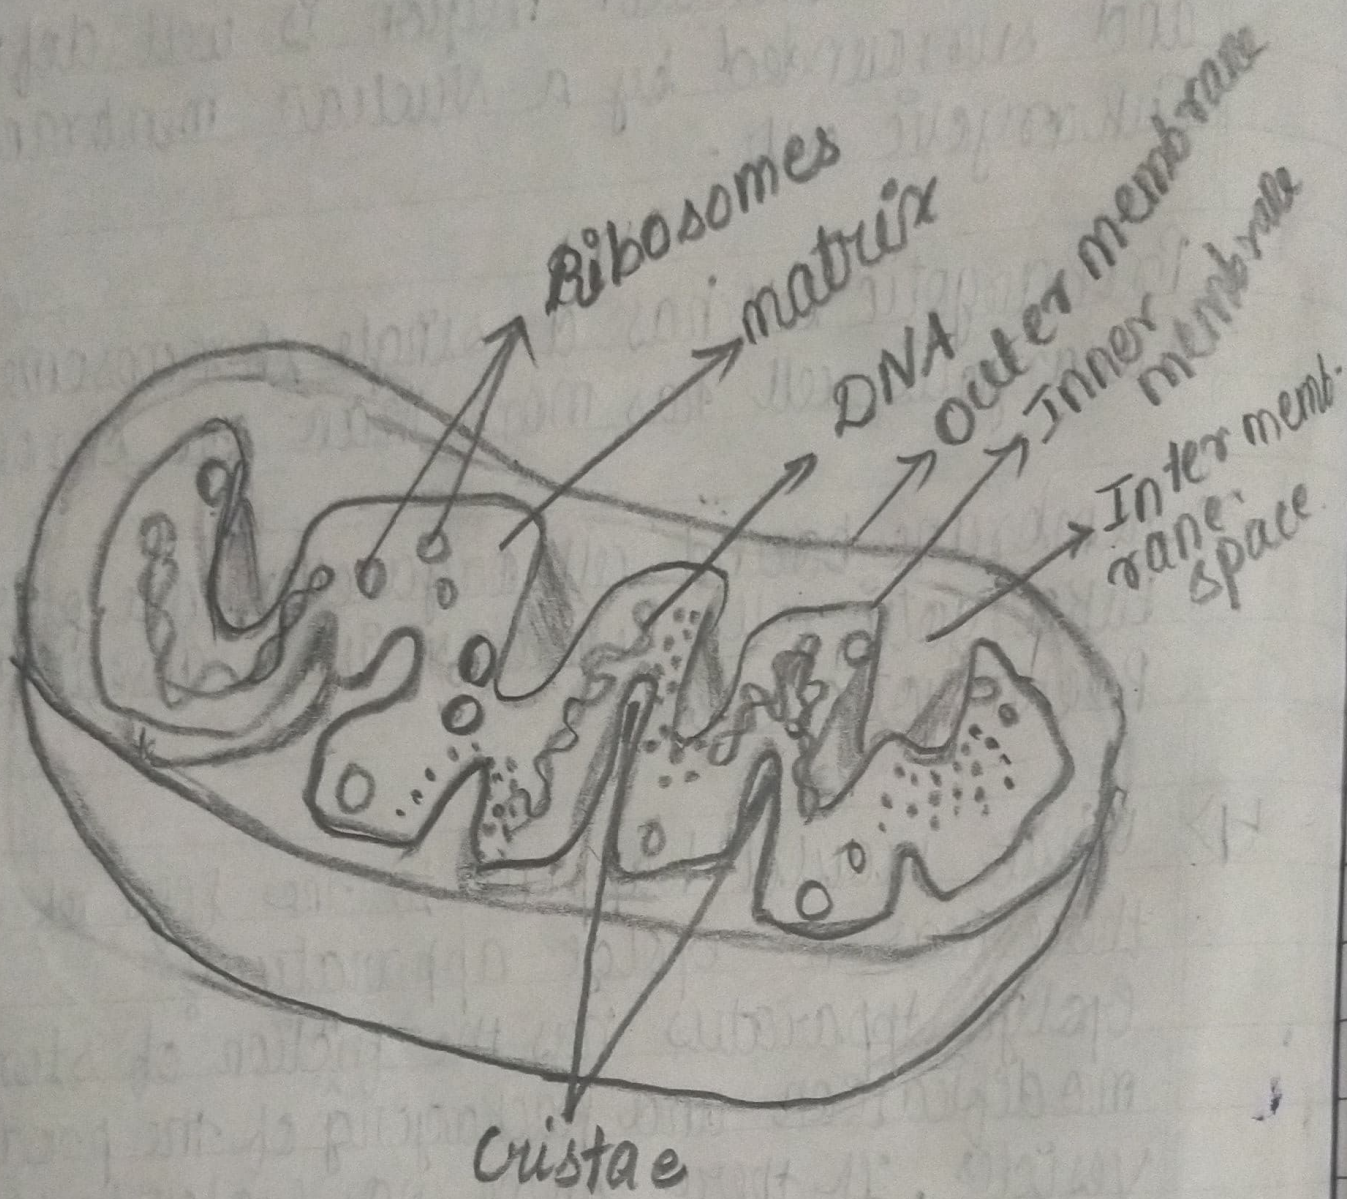 Ribosomes
matrix
DNA
Outer membrane
Inner
membrane
Inter memb-
rane-
space
Cristae